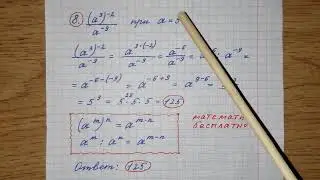 8. (a³)⁻² / a⁻⁹ при a=5
(a³)⁻² / a⁻⁹ = a^(3·(-2)) / a⁻⁹ = a⁻⁶ / a⁻⁹ = a⁻⁶ : a⁻⁹ =
= a^(-6-(-9)) = a^(-6+9) = a^(9-6) =
= 5³ = 5·5·5 = 125
25
(aᵐ)ⁿ = a^(m·n)
aᵐ : aⁿ = a^(m-n)
математи
бесплатно
Ответ: 125